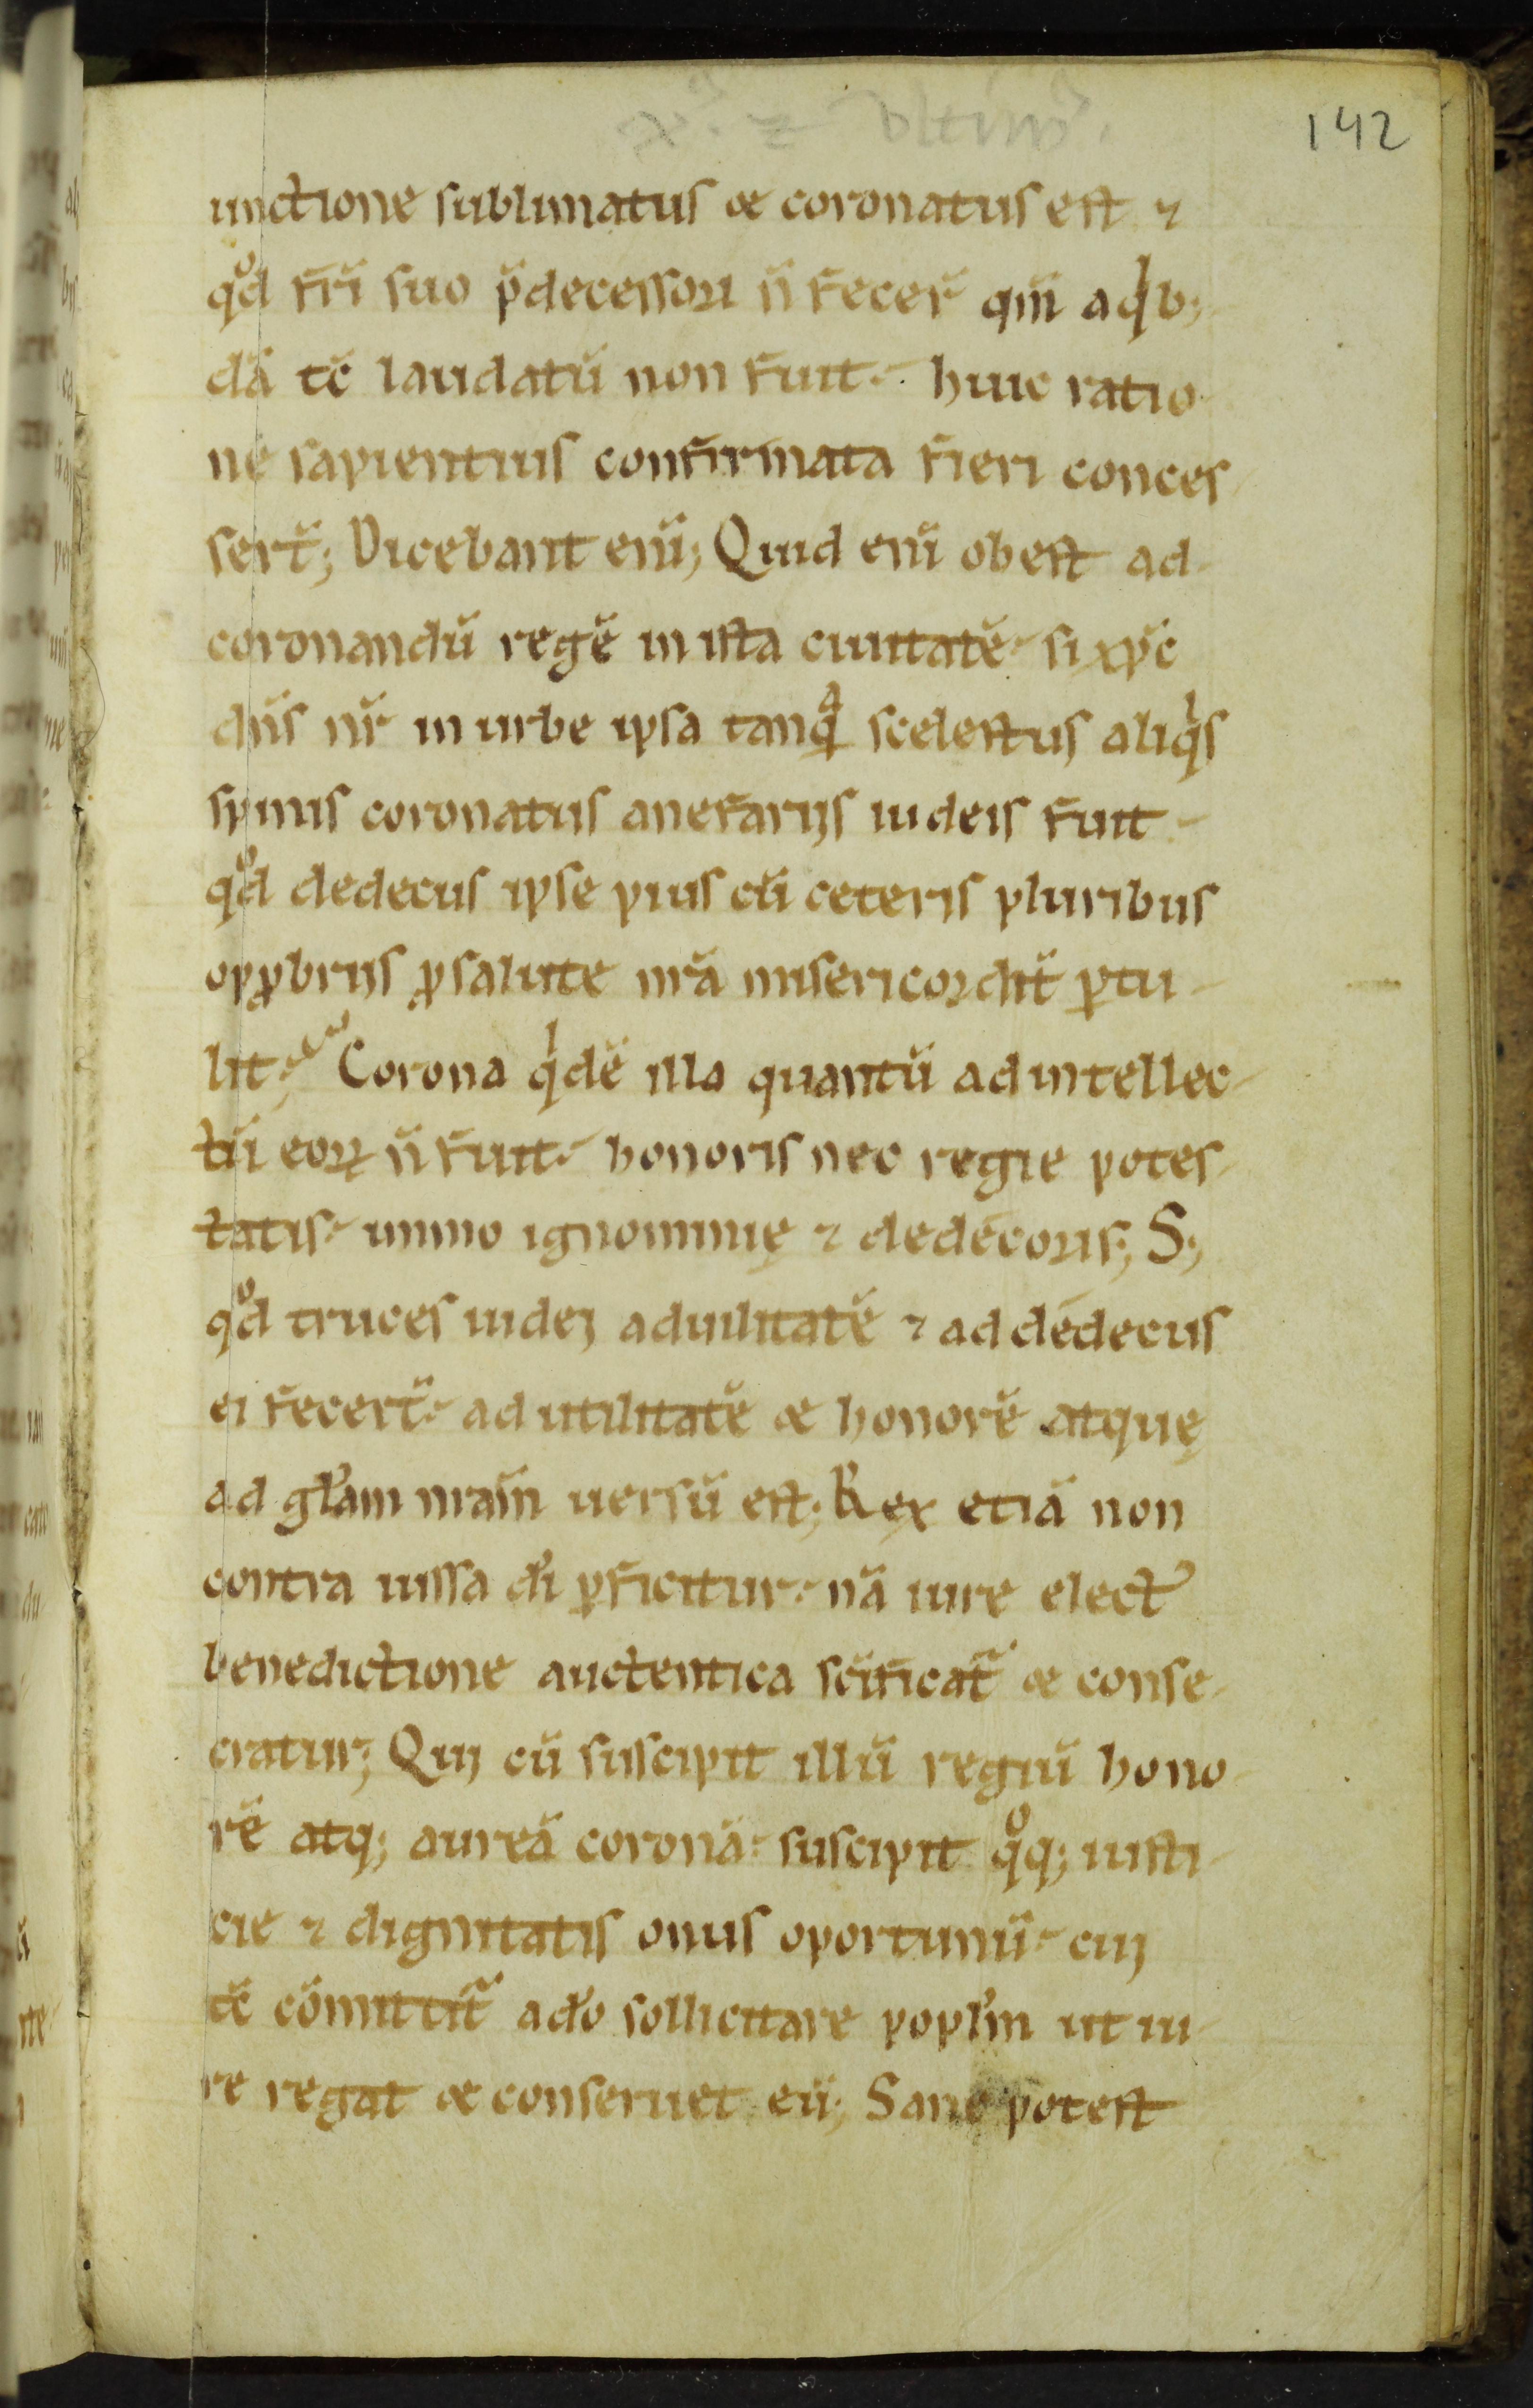 142
unctione sublimatus & coronatus est ⁊
qᵒd fr̄i suo p̄decessori n̄ fecer̄ qm̄ a qⁱb;
dā tc̄ laudatū non fuit. huic ratio
ne sapientius confirmata fieri conces
sert̄; Dicebant eni̅; Quid eni̅ obest ad
coronandū regē in ista ciuitatē si xp̄c
dn̄s nr̄ in urbe ipsa tanqᵃ scelestus aliqⁱs
spinis coronatus anefarijs iudeis fuit
qᵒd dedecus ipse pius cū ceteris pluribus
opꝓbrijs ꝓsalute nr̄a misericordit̄ ꝑtu
lit; Corona qⁱdē illa quantū adintellec
tū eoꝝ n̄ fuit honoris nec regie potes
tatis immo ignominię ⁊ dedecoris; S;
qᵒd truces iudei aduilitatē ⁊ ad dedecus
ei fecert̄ ad utilitatē & honorē atquę
ad gl̄am nr̄am uersū est; Rex etiā non
contra iussa dī ꝑficitur nā iure elect᾽
benedictione auctentica sc̄ificat̄ & conse
cratur; Qui cū suscipit illū regiū hono
rē atq; aureā coronā suscipit qᵒq; iusti
cie ⁊ dignitatis onus oportunū cui
tc̄ cōmittit̄ ado̅ sollicitare popl̄m ut iu
re regat & conseruet eū; Sane potest